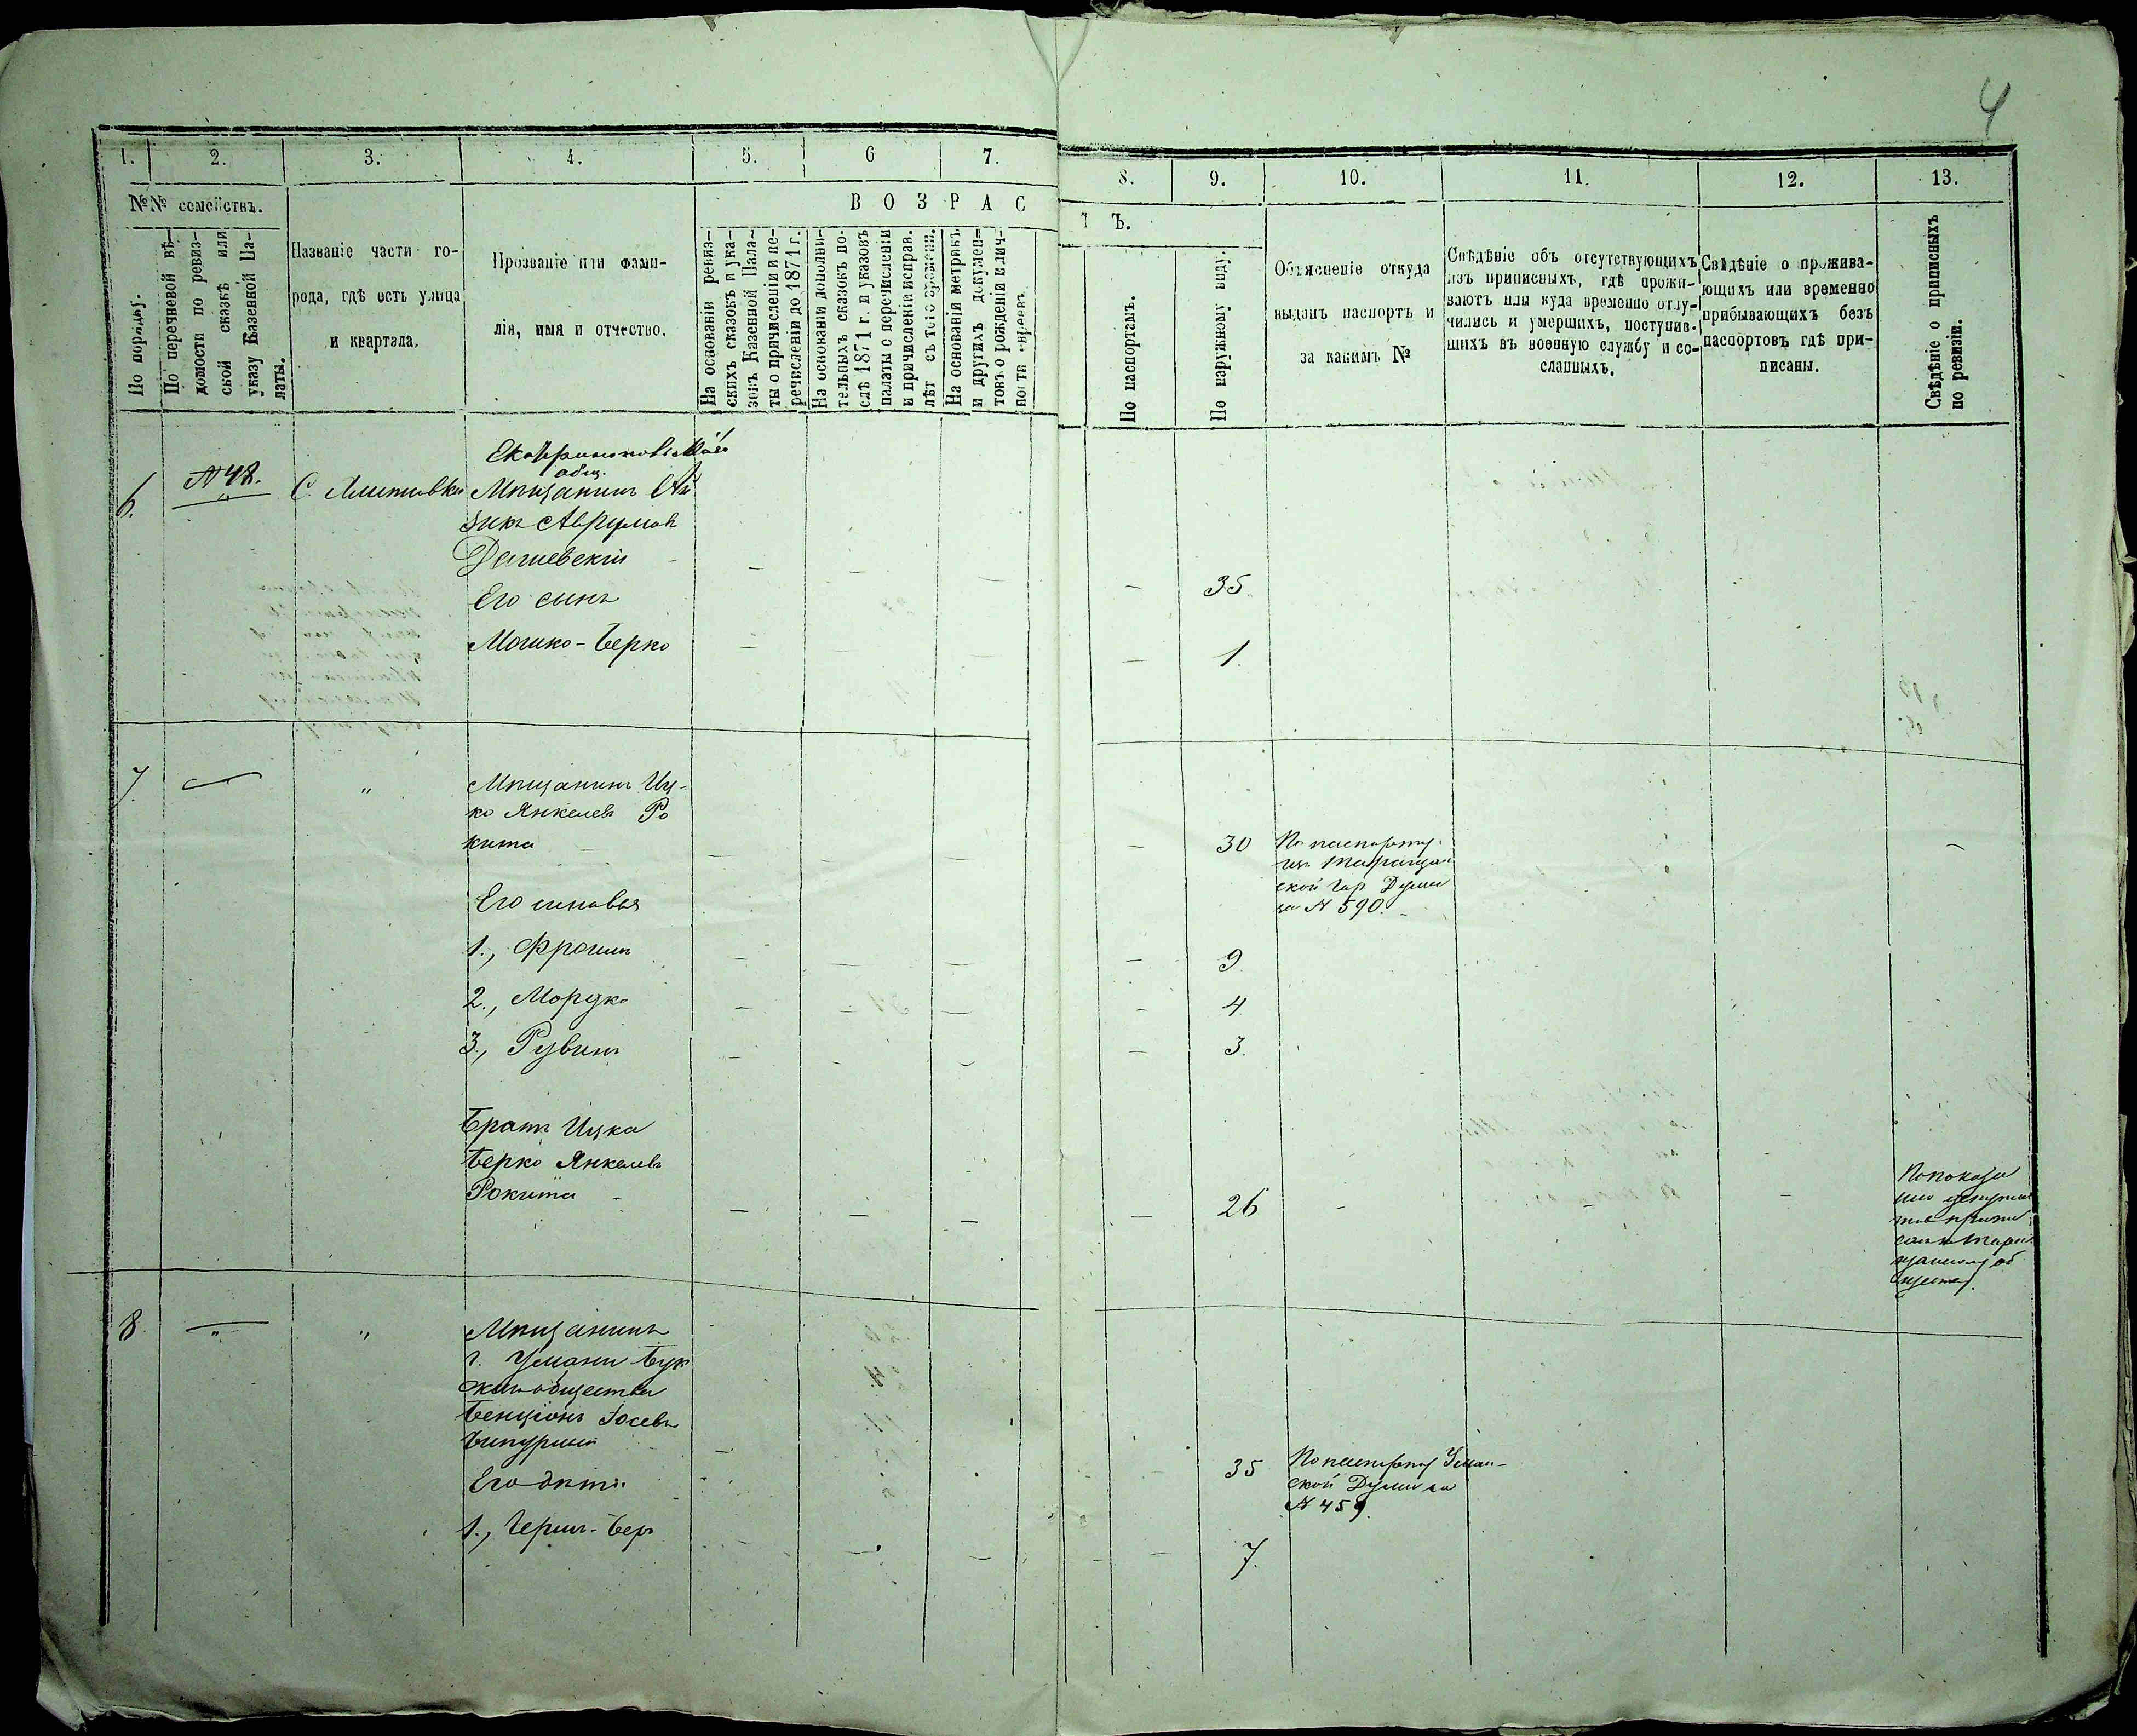 4
1. 2. 3. 4. 5. 6 7. 8. 9. 10. 11. 12. 13.
№№ семействъ.
ВОЗРАС
Т Ъ.
По порядку.
По перечневой вѣ-
домости по ревиз-
ской сказкѣ или
указу Казенной Па-
латы.
Названіе части го-
рода, гдѣ есть улица
и квартала.
Прозваніе или фами-
лія, имя и отчество.
На основаніи ревиз-
скихъ сказокъ и ука-
зовъ Казенной Пала-
ты о причисленіи и пе-
речисленіи до 1871 г.
На основаніи дополни-
тельныхъ сказокъ по-
слѣ 1871 г. и указовъ
палаты с перечисленіи
и причисленіи исправ.
лѣт съ того времени.
На основаніи метрикъ
и другихъ докумен-
товъ о рожденіи и лич-
ности евреевъ
По паспортамъ.
По наружному виду.
Объясненіе откуда
выданъ паспортъ и
за какимъ №
Свѣдѣніе объ отсутствующихъ
изъ приписныхъ, гдѣ прожи-
ваютъ или куда временно отлу-
чились и умершихъ, поступив-
шихъ въ военную службу и со-
сланныхъ.
Свѣдѣніе о прожива-
ющихъ или временно
прибывающихъ безъ
паспортовъ гдѣ при-
писаны.
Свѣдѣніе о приписныхъ
по ревизіи.
6. №48. С.
общ.
Мѣщанинъ Ай
зикъ Аврумов
Дашевскій — — — — 35.
Его сынъ
Мошко-Берко — — — — 1.
7. — „ Мѣщанинъ Иц-
ко Янкелевъ Ро
кита — — — — 30 По паспорту
изъ Таращан
ской Гор Думы
за № 590. —
Его синовья
1., Фроимъ — — — — 9
2., Мордко — — — — 4
3., Рувинъ — — — — 3.
Братъ Ицка
Берко Янкелевъ
Рокита — — — — 26 - —
По показа
нію
припи
санъ Тара
щанскому об
ществу
8 — „ „ Мѣщанинъ
г. Умани
общества
Бенціонъ Іосевъ
— 35 По паспорту Уман-
ской Думы за
№ 459.
Его дѣти
1., Гершъ-Беръ — — — 7.